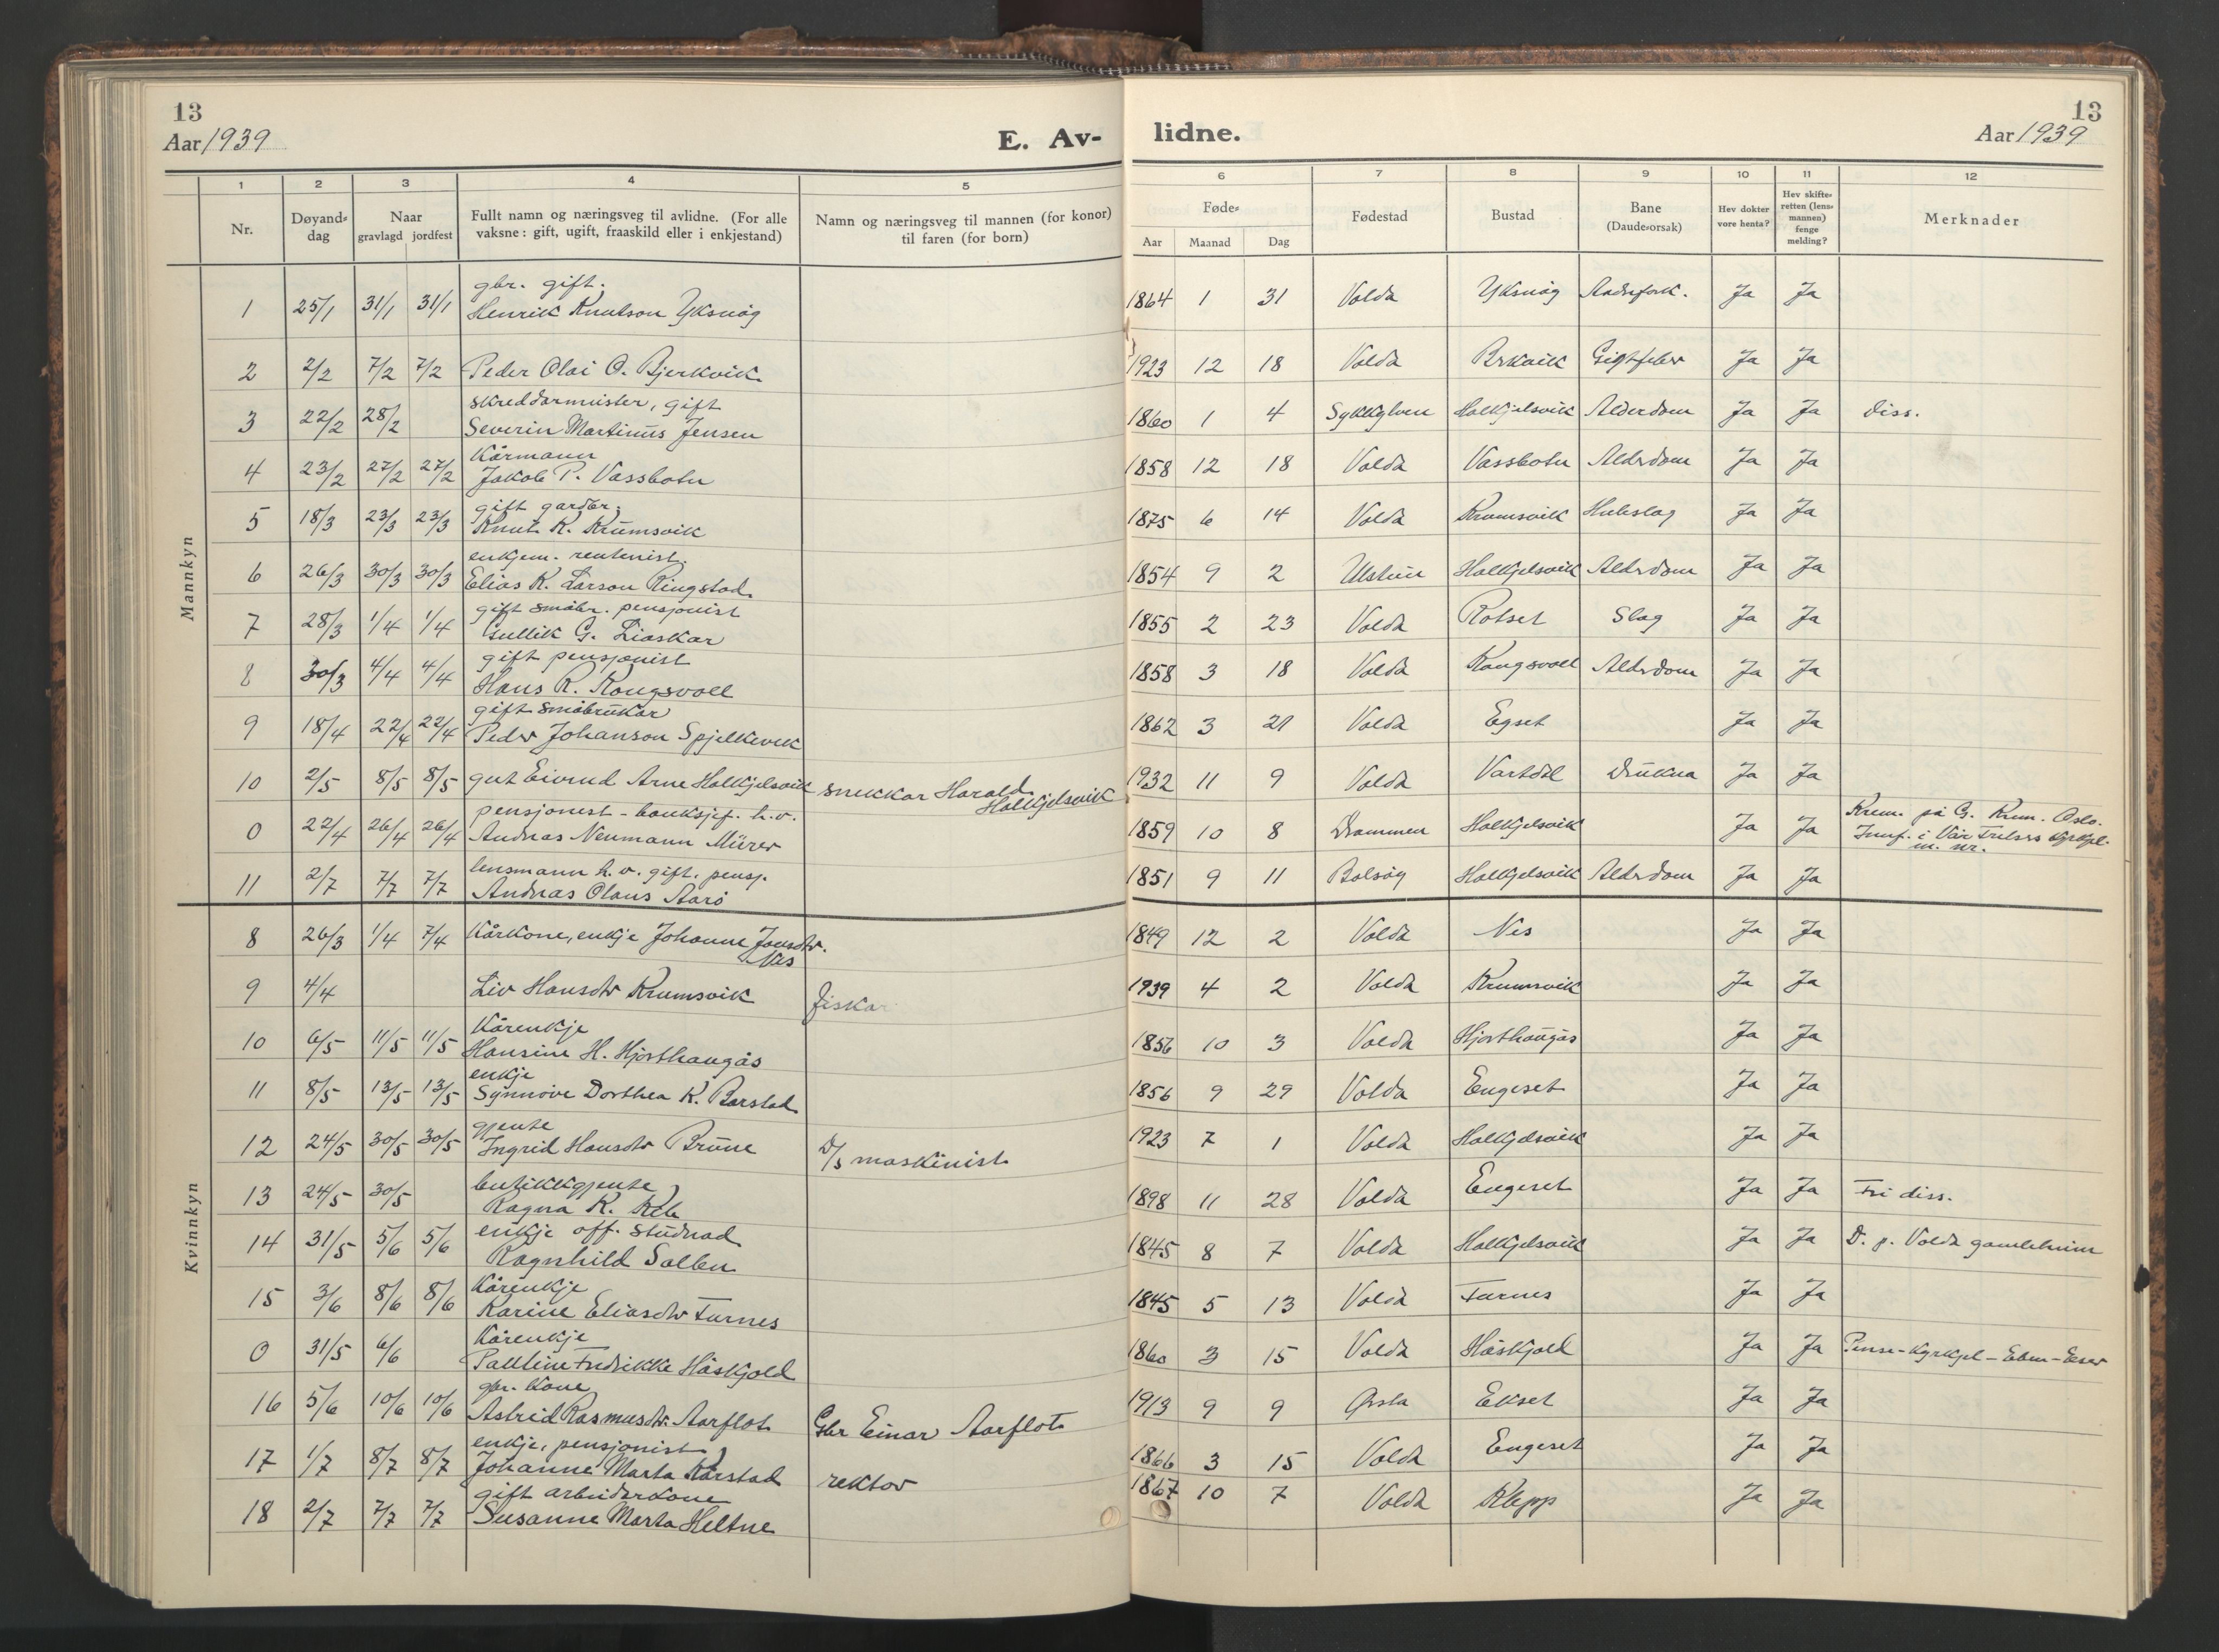 13
Aar 1939
E. Av-
lidne.
13
Aar 1939
1 2 3 4 5 6 7 8 9 10 11 12
Nr.
Døyand-dag
Naar gravlagd jordfest
Fullt namn og næringsveg til avlidne. (For alle vaksne: gift, ugift, fraaskild eller i enkjestand)
Namn og næringsveg til mannen (for konor) til faren (for born)
Føde-
Aar Maanad Dag
Fødestad
Bustad
Bane (Daude-orsak)
Hev dokter vore henta?
Hev skifte-retten (lens-mannen) fenge melding?
Merknader
Mannkyn
gbr. gift.
1 25/1 31/1 31/1 Henrik Knutson Yksnøy 1864 1 31 Volda Yksnøy Ja Ja
2 2/2 7/2 7/2 Peder Olai O. Bjerkvik 1923 12 18 Volda Gigtfeber Ja Ja
skreddarmeister, gift
3 22/2 28/2 Severin Martinus Jensen 1860 1 4 Sykkylven Halkjelsvik Alderdom Ja Ja diss.
Kårmann
4 23/2 27/2 27/2 Jakob P. Vassbotn 1858 12 18 Volda Vassbotn Alderdom Ja Ja
gift gardbr.
5 18/3 23/3 23/3 Knut R. Krumsvik 1875 6 14 Volda Krumsvik Ja Ja
enkjem. rentenist.
6 26/3 30/3 30/3 Elias K. Larson Ringstad 1854 9 2 Ulstein Halkjelsvik Alderdom Ja Ja
gift småbr. pensjonist
7 28/3 1/4 1/4 Gullik G. Liaskar 1855 2 23 Volda Rotset Slag Ja Ja
gift pensjonist
8 30/3 4/4 4/4 Hans R. Kongsvoll 1858 3 18 Volda Kongsvoll Alderdom Ja Ja
gift småbrukar
9 18/4 22/4 22/4 Peder Johanson Spjelkevik 1862 3 21 Volda Egset Ja Ja
10 2/5 8/5 8/5 gut Eivind Arne Halkjelsvik snekkar Harald Halkjelsvik 1932 11 9 Volda Vartdal Drukna Ja Ja
pensjonist - banksjef. h.v.
0 22/4 26/4 26/4 Andreas Neumann Mürer 1859 10 8 Drammen Halkjelsvik Ja Ja Krem. på G. Krem. Oslo.
i Vår Frelsers
lensmann h.v. gift. pensj.
11 2/7 7/7 7/7 Andreas Olaus Aarø 1851 9 11 Bolsøy Halkjelsvik Alderdom Ja Ja
Kvinnkyn
8 26/3 1/4 7/4 Kårkone, enkje Johanne Jonsdtr. Nes 1849 12 2 Volda Nes Ja Ja
9 4/4 Liv Hansdtr Krumsvik fiskar 1939 4 2 Volda Krumsvik Ja Ja
Kårenkje
10 6/5 11/5 11/5 Hansine H. Hjorthaugås 1856 10 3 Volda Hjorthaugås Ja Ja
enkje
11 8/5 13/5 13/5 Synnøve Dorthea K. Barstad 1856 9 29 Volda Engeset Ja Ja
gjente
12 24/5 30/5 30/5 Ingrid Hansdtr Brune D/S maskinist 1923 7 1 Volda Halkjelsvik Ja Ja
butikkgjente
13 24/5 30/5 Ragna R. 1898 11 28 Volda Engeset Ja Ja Fri diss.
enkje off. studnad
14 31/5 5/6 5/6 Ragnhild Solbu 1845 8 7 Volda Halkjelsvik Ja Ja D. p. Volda gamleheim
Kårenkje
15 3/6 8/6 8/6 Karine Eliasdtr Furnes 1845 5 13 Volda Furnes Ja Ja
Kårenkje
0 31/5 6/6 Pauline Fredrikke Håskjold 1860 3 15 Volda Håskjold Ja Ja
gbr. kone
16 5/6 10/6 10/6 Astrid Rasmusdtr. Aarflot Gbr Einar Aarflot 1913 9 9 Ørsta Ekset Ja Ja
enkje, pensjonist
17 1/7 8/7 8/7 Johanne Marta Kårstad rektor 1866 3 15 Volda Engeset Ja Ja
gift arbeidarkone
18 2/7 7/7 7/7 Susanne Marta Heltne 1867 10 7 Volda Klepp Ja Ja